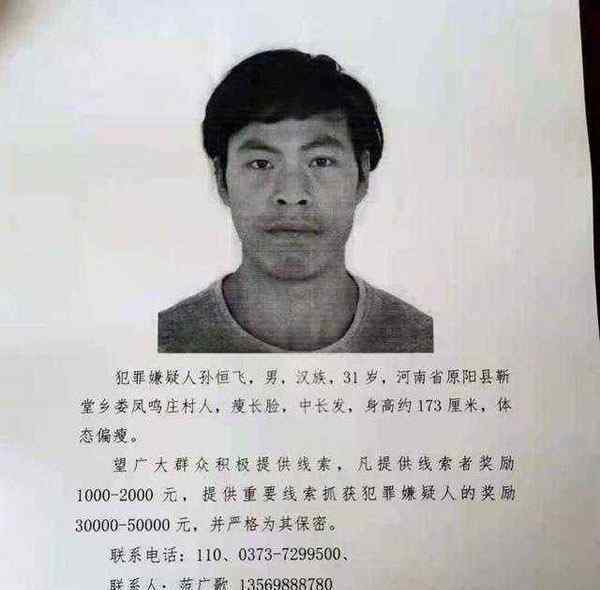 犯罪嫌疑人孙恒飞，男，汉族，31岁，河南省原阳县靳
堂乡娄凤鸣庄村人，瘦长脸，中长发，身高约173厘米，体
态偏瘦。
望广大群众积极提供线索，凡提供线索者奖励
1000-2000元，提供重要线索抓获犯罪嫌疑人的奖励
30000-50000元，并严格为其保密。
联系电话：110、0373-7299500、
联系人：范广歌 13569888780